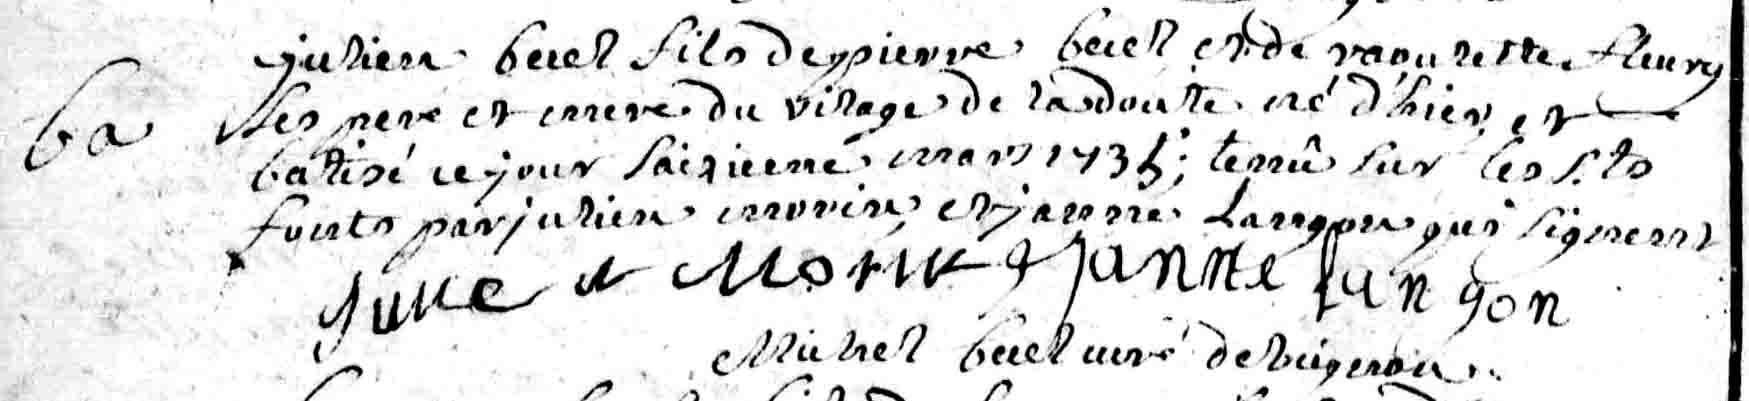 julien beuel fils de pierre beuel et de raoulette fleury
ba ses pere et mere du vilage de la doute né d'hier et
batisé ce jour saizieme mars 1735; tenû sur les sts
fonts par julien morin et janne Langon qui signent
Morin Janne Langon
Michel beuel curé de